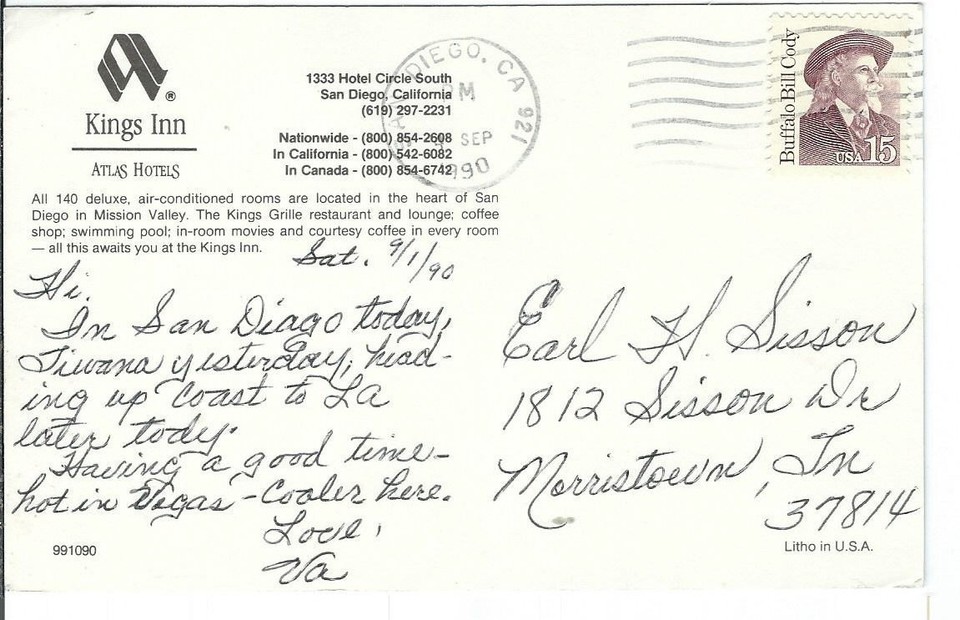 Kings Inn
ATLAS HOTELS
1333 Hotel Circle South
San Diego, California
(619) 297-2231
Nationwide - (800) 854-2608
In California - (800) 542-6082
In Canada - (800) 854-6742
SAN DIEGO, CA 921
PM
SEP
1990
Buffalo Bill Cody
USA 15
All 140 deluxe, air-conditioned rooms are located in the heart of San
Diego in Mission Valley. The Kings Grille restaurant and lounge; coffee
shop; swimming pool; in-room movies and courtesy coffee in every room
— all this awaits you at the Kings Inn.
Sat. 9/1/90
Hi.
In San Diago today,
Tiwana yesterday, head-
ing up coast to LA
later tody.
Having a good time -
hot in Vegas - Cooler here.
Love,
Va
Earl H. Sisson
1812 Sisson Dr
Morristown, Tn
37814
991090
Litho in U.S.A.